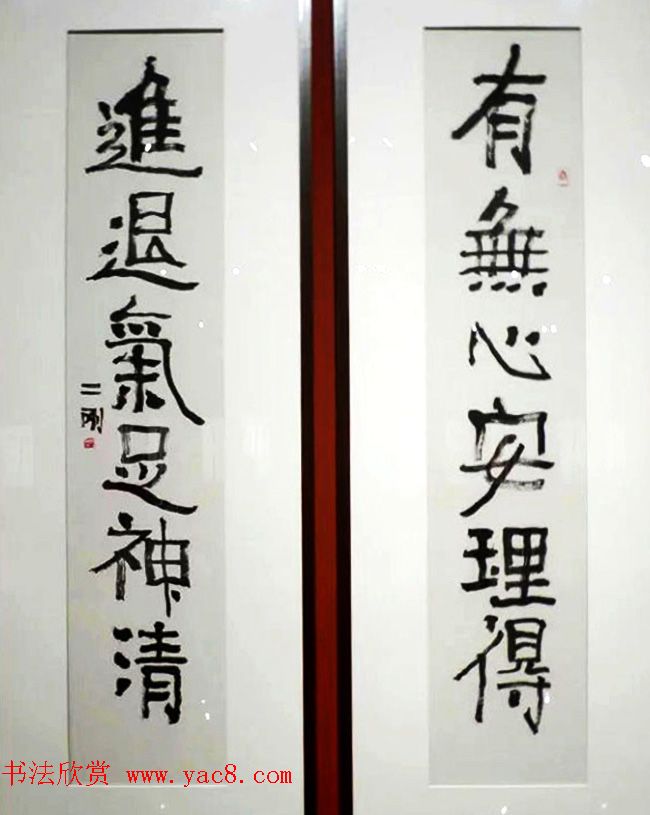 有無心安理得
進退氣足神清
二剛
书法欣赏 www.yac8.com